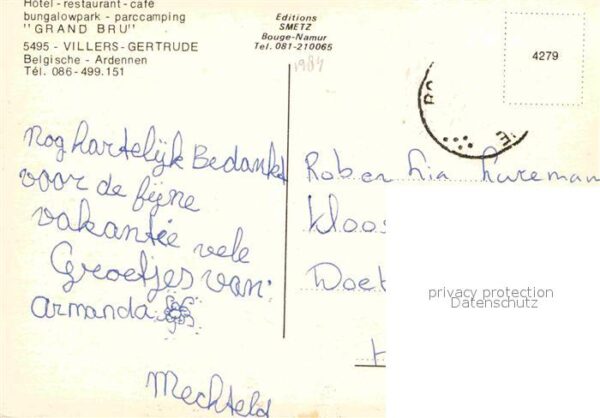 Hotel-restaurant-café
bungalowpark - parccamping
"GRAND BRU"
5495 - VILLERS-GERTRUDE
Belgische - Ardennen
Tél. 086-499.151
Editions
SMETZ
Bouge-Namur
Tel. 081-210065
1984
4279
nog hartelijk Bedankt
voor de fijne
vakantie vele
Groetjes van:
armanda
Mechteld
Rob en Lia
Kloos
Doet
privacy protection
Datenschutz